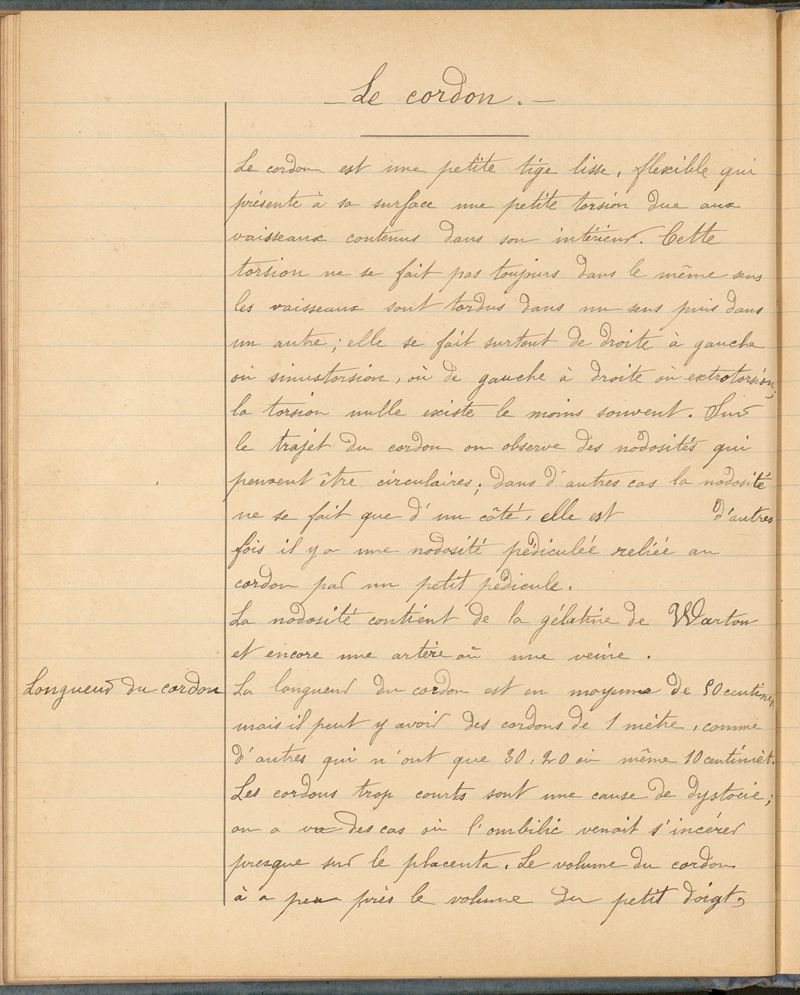 — Le cordon. —
Le cordon est une petite tige lisse, flexible qui
présente à sa surface une petite torsion due aux
vaisseaux contenus dans son intérieur. Cette
torsion ne se fait pas toujours dans le même sens
les vaisseaux sont tordus dans un sens puis dans
un autre; elle se fait surtout de droite à gauche
où sinustorsion, où de gauche à droite ou extrotorsion;
la torsion nulle existe le moins souvent. Sur
le trajet du cordon on observe des nodosités qui
peuvent être circulaires; dans d'autres cas la nodosité
ne se fait que d'un côté, elle est d'autres
fois il y a une nodosité pédiculéé reliée au
cordon par un petit pédicule.
La nodosité contient de la gélatine de Warton
et encore une artère où une veine.
Longueur du cordon
La longueur du cordon est en moyenne de 50 centim,
mais il peut y avoir des cordons de 1 mètre, comme
d'autres qui n'ont que 30, 20 où même 10 centimèt.
Les cordons trop courts sont une cause de dystocie;
on a vu des cas où l'ombilic venait s'incérer
presque sur le placenta. Le volume du cordon
à a peu près le volume du petit doigt,